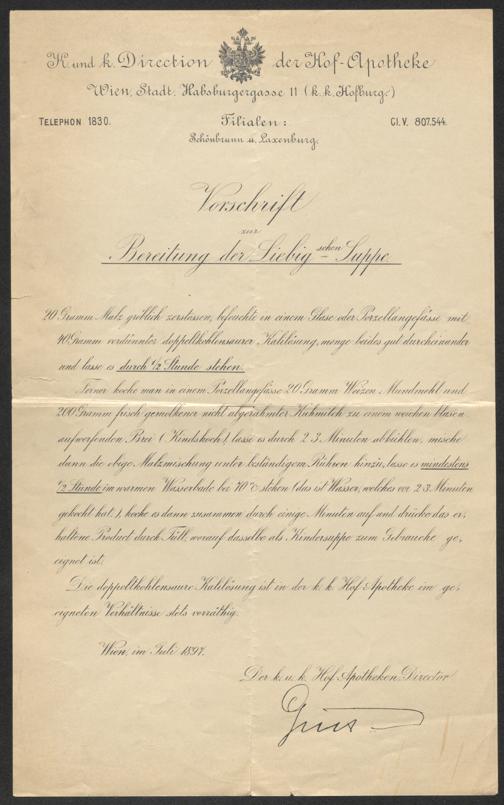 K. und k. Direction der Hof-Apotheke
Wien, Stadt, Habsburgergasse 11 (k. k. Hofburg.)
TELEPHON 1830. Filialen: Cl. V. 807.544.
Schönbrunn u. Laxenburg.
Vorschrift
zur
Bereitung der Liebig'schen Suppe.
20 Gramm Malz gröblich zerstossen, befeuchte in einem Glase oder Porzellangefässe mit
40 Gramm verdünnter doppeltkohlensaurer Kalilösung, menge beides gut durcheinander
und lasse es durch 1/2 Stunde stehen.
Ferner koche man in einem Porzellangefässe 20 Gramm Weizen Mundmehl und
200 Gramm frisch gemolkener nicht abgerahmter Kuhmilch zu einem weichen blasen-
aufwerfenden Brei (Kindskoch), lasse es durch 2-3 Minuten abkühlen, mische
dann die obige Malzmischung unter beständigem Rühren hinzu, lasse es mindestens
1/2 Stunde im warmen Wasserbade bei 70° C stehen (das ist Wasser, welches vor 2-3 Minuten
gekocht hat), koche es dann zusammen durch einige Minuten auf und drücke das er-
haltene Product durch Tüll, worauf dasselbe als Kindersuppe zum Gebrauche ge-
eignet ist.
Die doppeltkohlensaure Kalilösung ist in der k. k. Hof-Apotheke im ge-
eigneten Verhältnisse stets vorräthig.
Wien, im Juli 1897.
Der k. u. k. Hof-Apotheken-Director